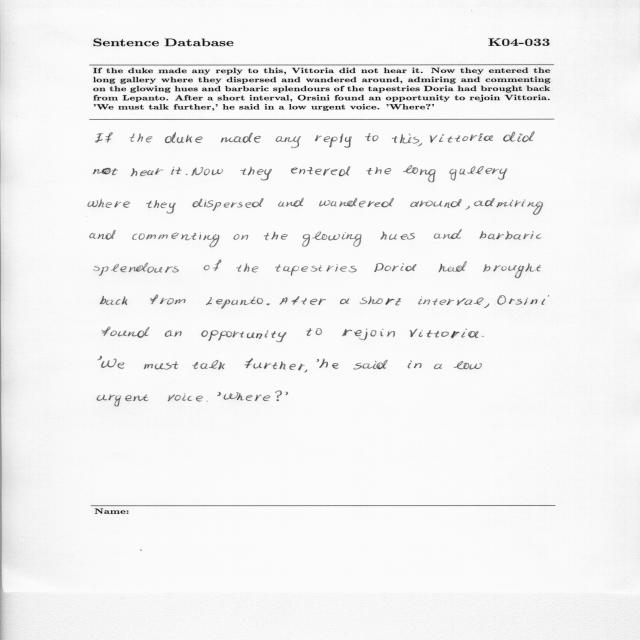 Sentence Database K04-033
If the duke made any reply to this, Vittoria did not hear it. Now they entered the
long gallery where they dispersed and wandered around, admiring and commenting
on the glowing hues and barbaric splendours of the tapestries Doria had brought back
from Lepanto. After a short interval, Orsini found an opportunity to rejoin Vittoria.
'We must talk further,' he said in a low urgent voice. 'Where?'
If the duke made any reply to this, Vittoria did
not hear it. Now they entered the long gallery
where they dispersed and wandered around, admiring
and commenting on the glowing hues and barbaric
splendours of the tapestries Doria had brought
back from Lepanto. After a short interval, Orsini
found an opportunity to rejoin Vittoria.
'We must talk further,'he said in a low
urgent voice. 'Where?'
Name: